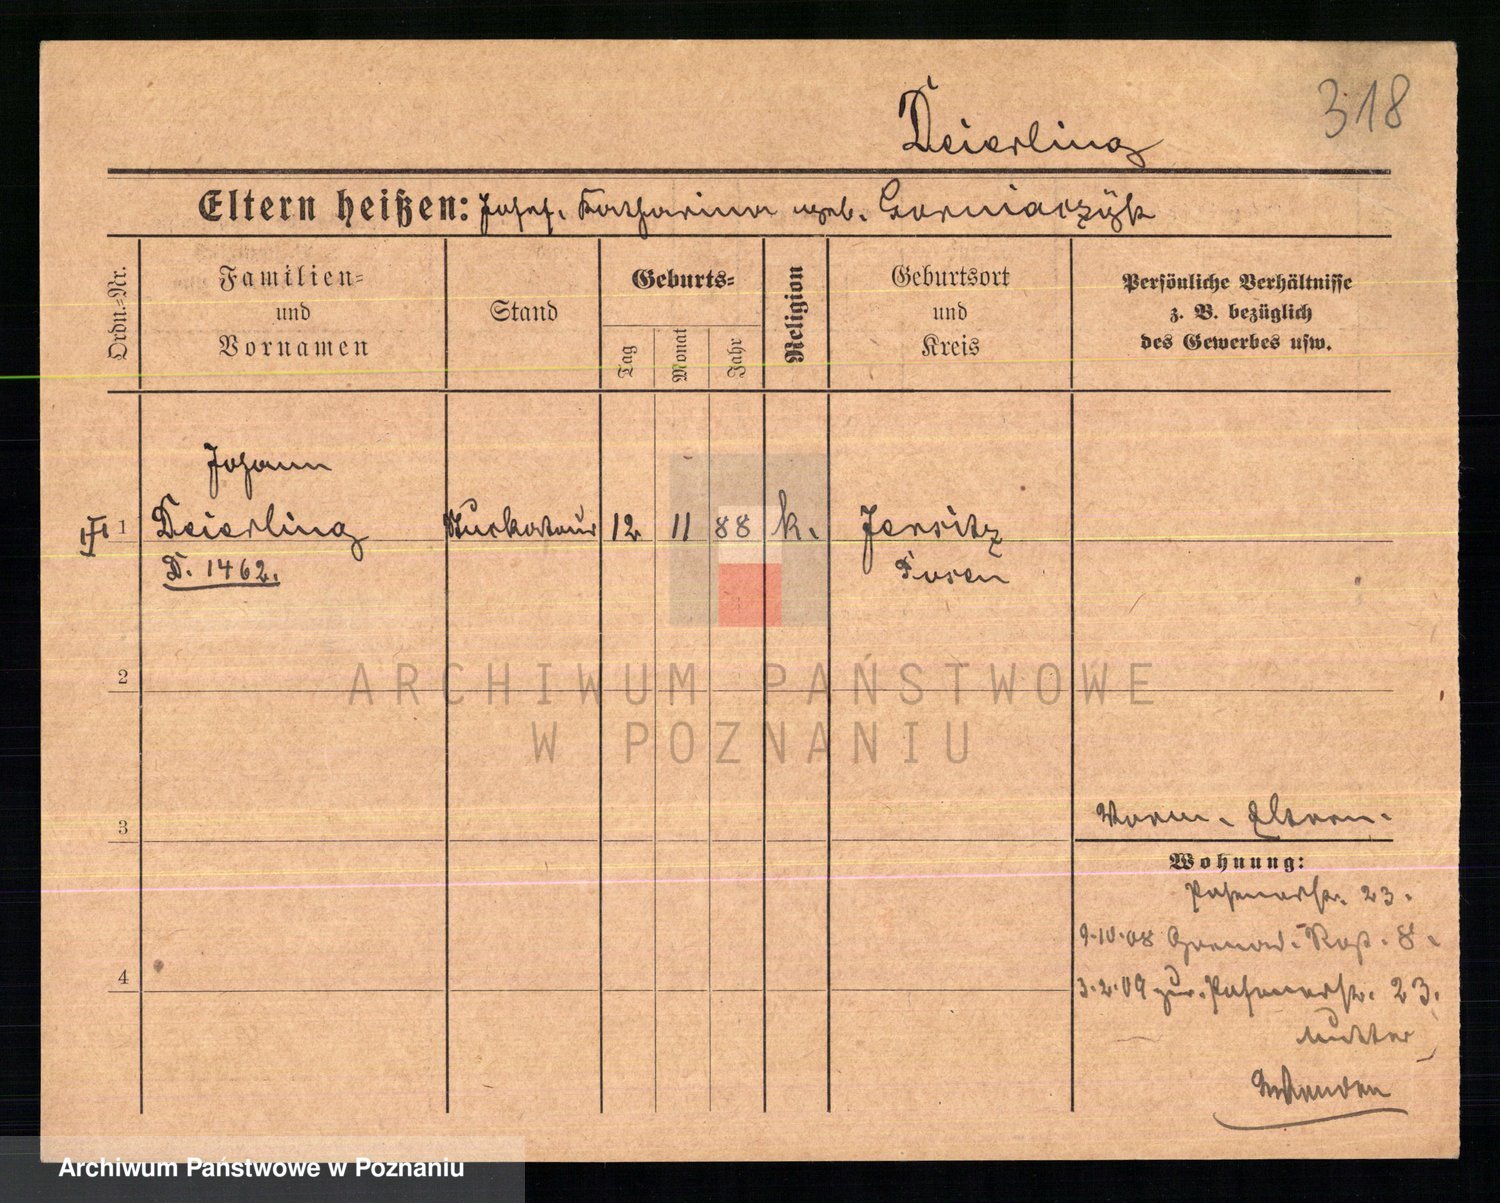 318
Deierling
Eltern heißen: Josef. Katharina geb. Gorniaczyk
Ordn.-Nr.
Familien-
und
Vornamen
Stand
Geburts-
Tag
Monat
Jahr
Religion
Geburtsort
und
Kreis
Persönliche Verhältnisse
z. B. bezüglich
des Gewerbes usw.
Johann
1 Deierling Stuckateur 12 11 88 k. Jersitz
D. 1462. Posen
2
ARCHIWUM PAŃSTWOWE
W POZNANIU
3
Eltern.
Wohnung:
23.
9.10.08 8.
4
3.2.09 zur. 23.
Mutter
Archiwum Państwowe w Poznaniu